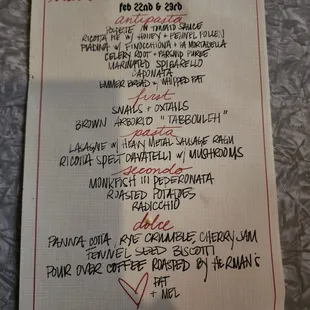 feb 22nd & 23rd
antipasta
POLPETTE IN TOMATO SAUCE
RICOTTA PIE W/ HONEY + FENNEL POLLEN
PIADINA W/ FINOCCHIONA + LA MORTADELLA
CELERY ROOT + PARSNIP PUREE
MARINATED SPIGARELLO
CAPONATA
EMMER BREAD + WHIPPED FAT
first
SNAILS + OXTAILS
BROWN ARBORIO "TABBOULEH"
pasta
LASAGNE W/ HEAVY METAL SAUSAGE RAGU
RICOTTA SPELT CAVATELLI W/ MUSHROOMS
secondo
MONKFISH IN PEPERONATA
ROASTED POTATOES
RADICCHIO
dolce
PANNA COTTA, RYE CRUMBLE, CHERRY JAM
FENNEL SEED BISCOTTI
POUR OVER COFFEE ROASTED BY HERMAN'S
PAT
+ MEL